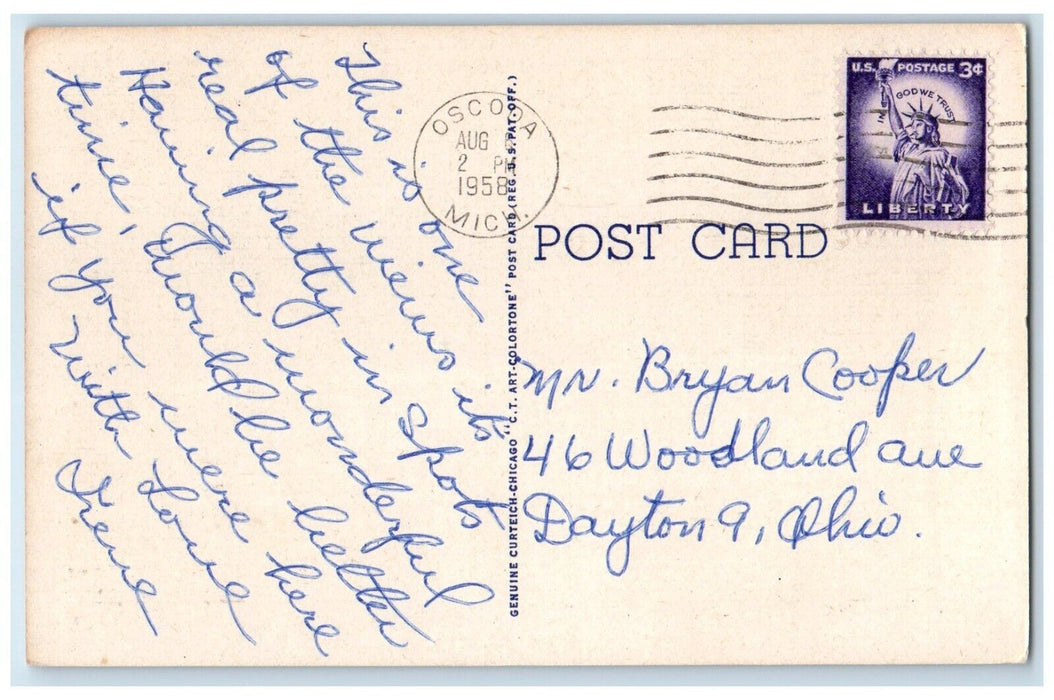 This is one
of the views its
real pretty in spots
Having a wonderful
time, Would be better
if you were here
With Love
Irene
OSCODA
AUG
2 PM
1958
MICH.
U.S. POSTAGE 3¢
IN GOD WE TRUST
LIBERTY
POST CARD
GENUINE CURTEICH-CHICAGO "C.T. ART-COLORTONE" POST CARD (REG. U.S. PAT. OFF.)
Mr. Bryan Cooper
46 Woodland ave
Dayton 9, Ohio.